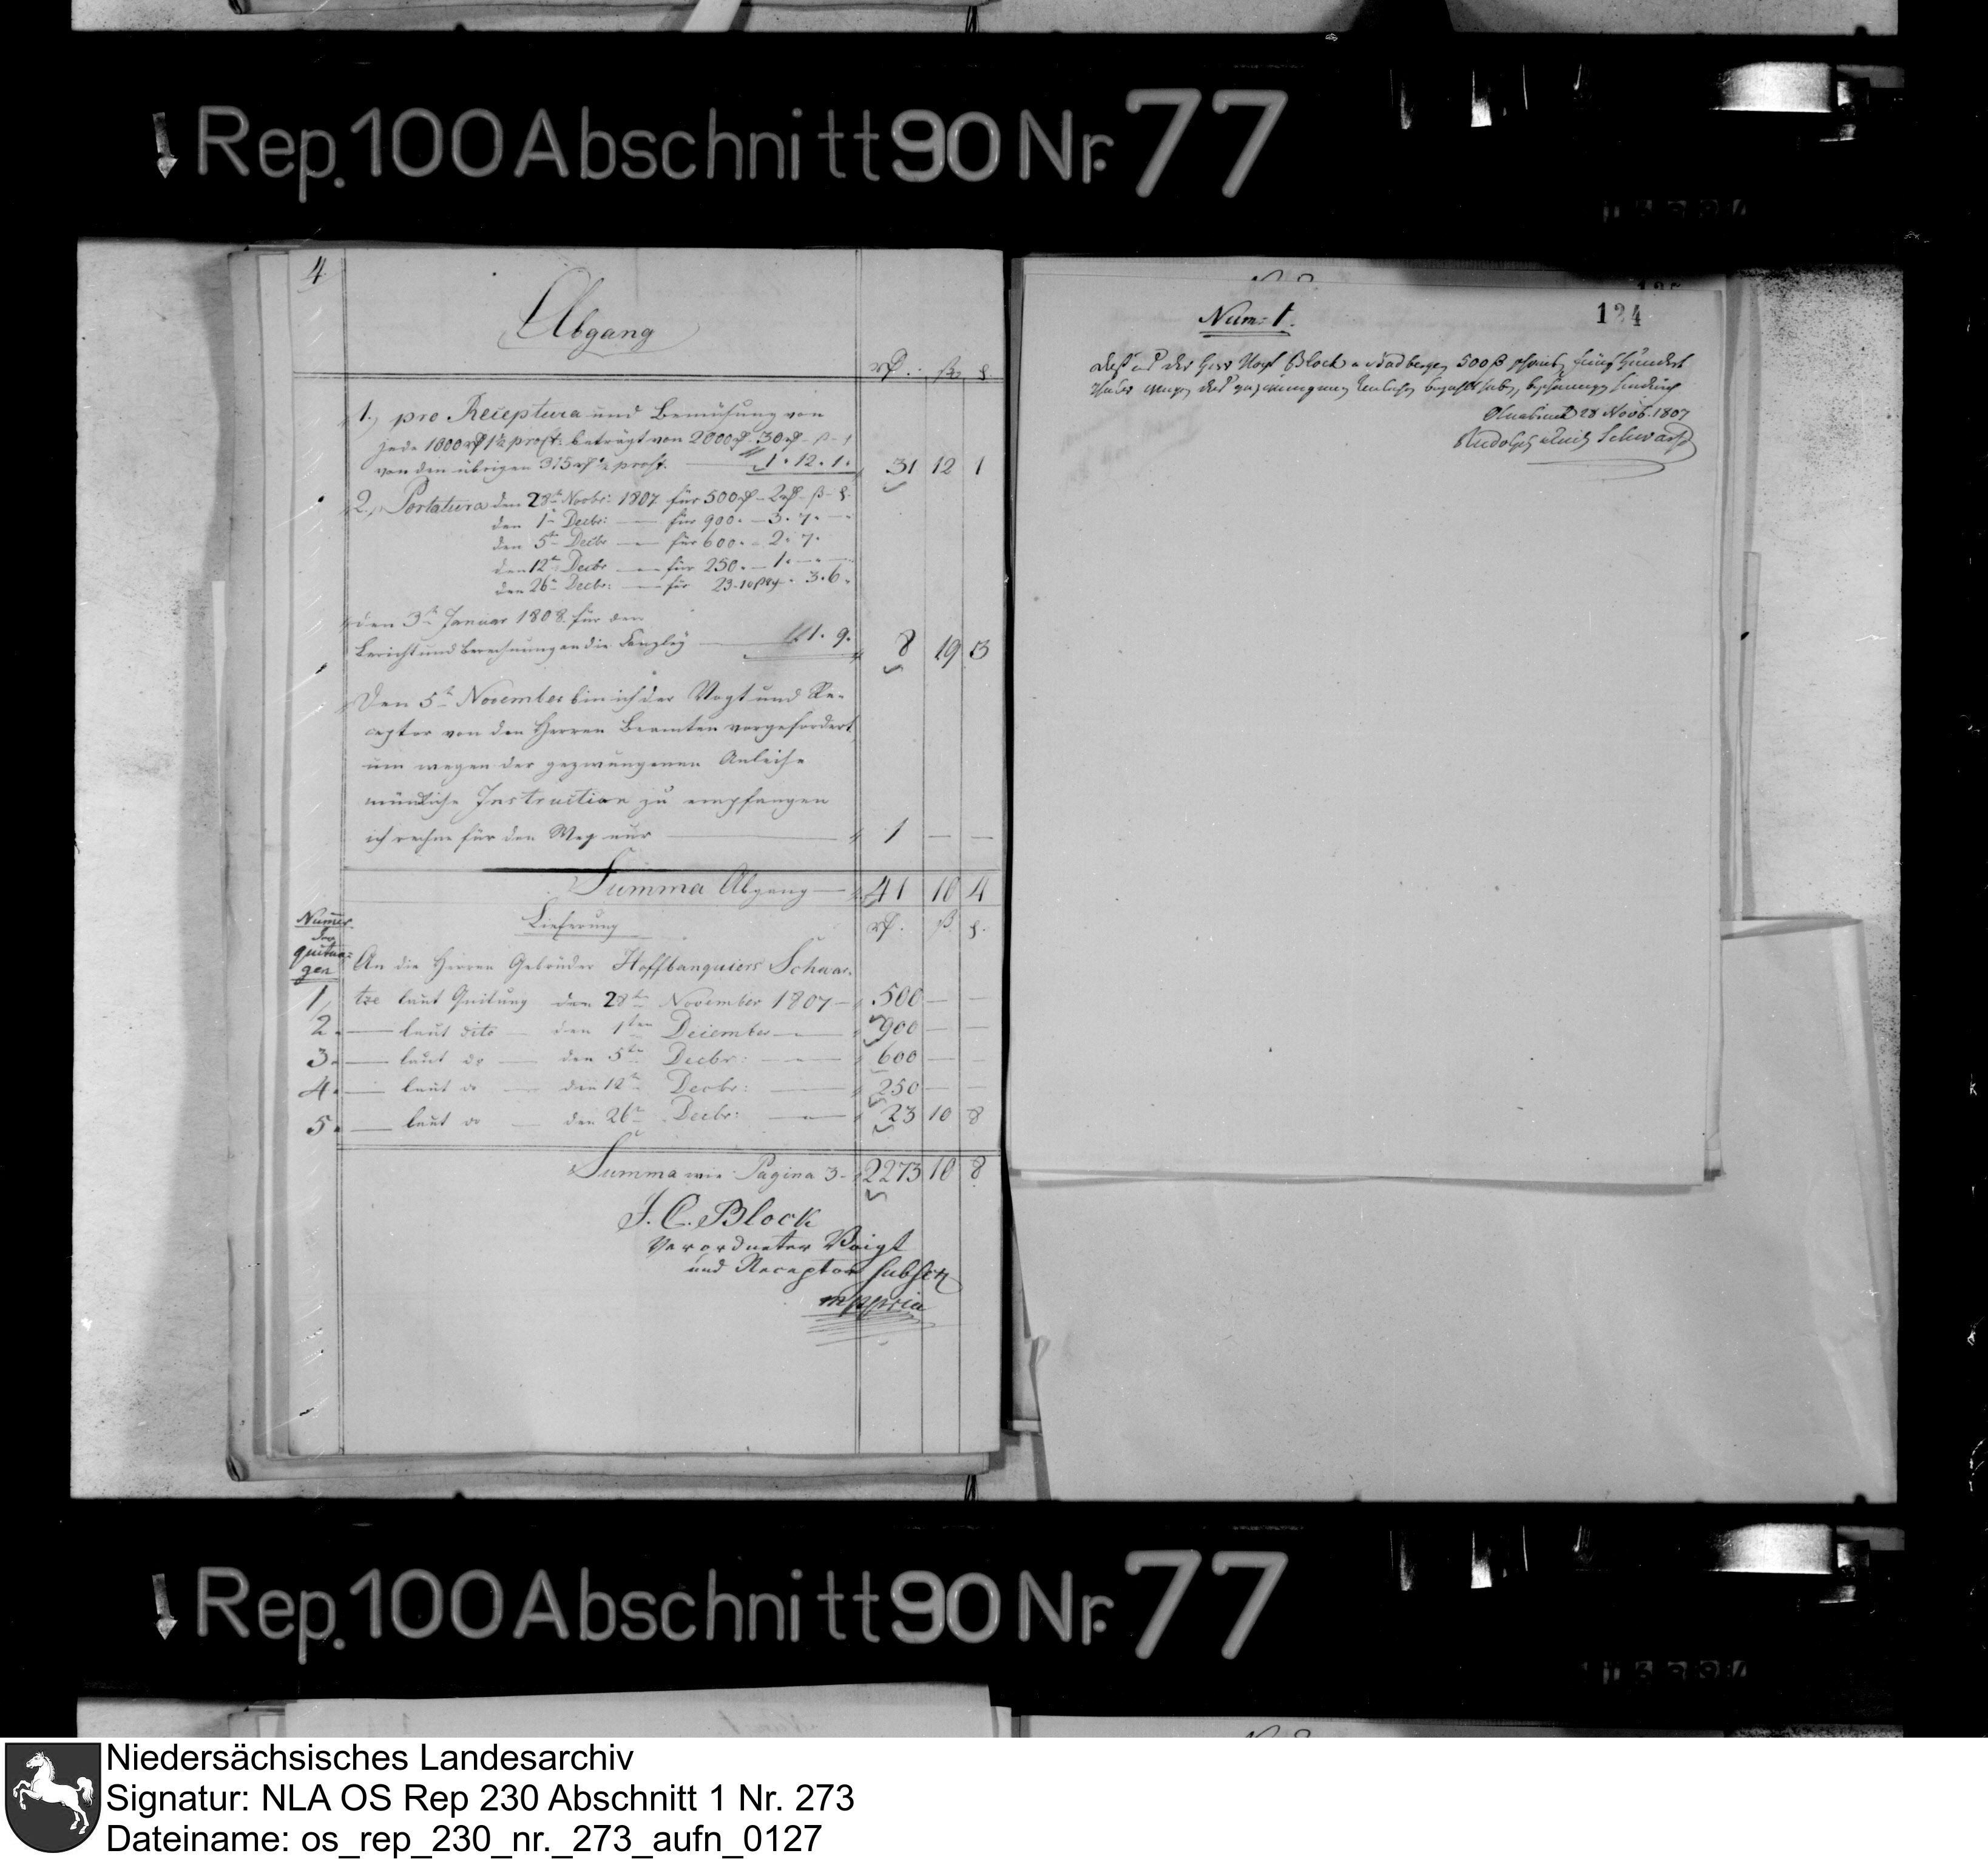 Rep. 100 Abschnitt 90 Nr. 77
4
Abgang
rß. ß. δ.
1., pro Receptura und Bemühung von
jede 1000 rß 1½ proft: beträgt von 2000 rß 30 rß - ß - δ
von den übrigen 315 rß ½ proft. 1. 12. 1. 31 12 1
2., Portatura den 28t Novbr: 1807 für 500 rß - 2 rß - ß - δ.
den 1t Decbr: — für 900. — 3. 7. —
den 5t Decbr — für 600. — 2. 7.
den 12t Decbr — für 250. — 1. — —
den 26t Decbr: — für 23. 10 ß 8 δ. 3. 6.
den 3t Januar 1808. für den
Bericht und Berechnung an die Canzley — 1. 9. 8 19 3
Den 5t November bin ich der Vogt und Re-
ceptor von den Herren Beamten vorgefordert,
um wegen der gezwungenen Anleihe
mündliche Instruction zu empfangen
ich rechne für den Weg nur — 1 — —
Summa Abgang — 41 10 4
Numer
der
quitun-
gen
Lieferung rß. ß. δ.
An die Herren Gebrüder Hoffbanquiers Schwar-
1, tze laut Quitung den 28t November 1807 — 500 — —
2. — laut dito — den 1ten December — 900 — —
3. — laut do — den 5t Decbr: — 600 — —
4. — laut do — den 12t Decbr: — 250 — —
5. — laut do — den 26t Decbr: — 23 10 8
Summa wie Pagina 3 - 2273 10 8
J. C. Block
Verordneter Voigt
und Receptor subscr
mppria
124
Num: 1.
Daß der Herr Vogt Block Badbergen 500 rß schreibe fünf Hundert
Thaler wegen der gezwungenen Anleihe bezahlt habe, bescheinige hiedurch
Osnabrück 28 Novb. 1807
Rudolph Schwartze
Rep. 100 Abschnitt 90 Nr. 77
Niedersächsisches Landesarchiv
Signatur: NLA OS Rep 230 Abschnitt 1 Nr. 273
Dateiname: os_rep_230_nr._273_aufn_0127